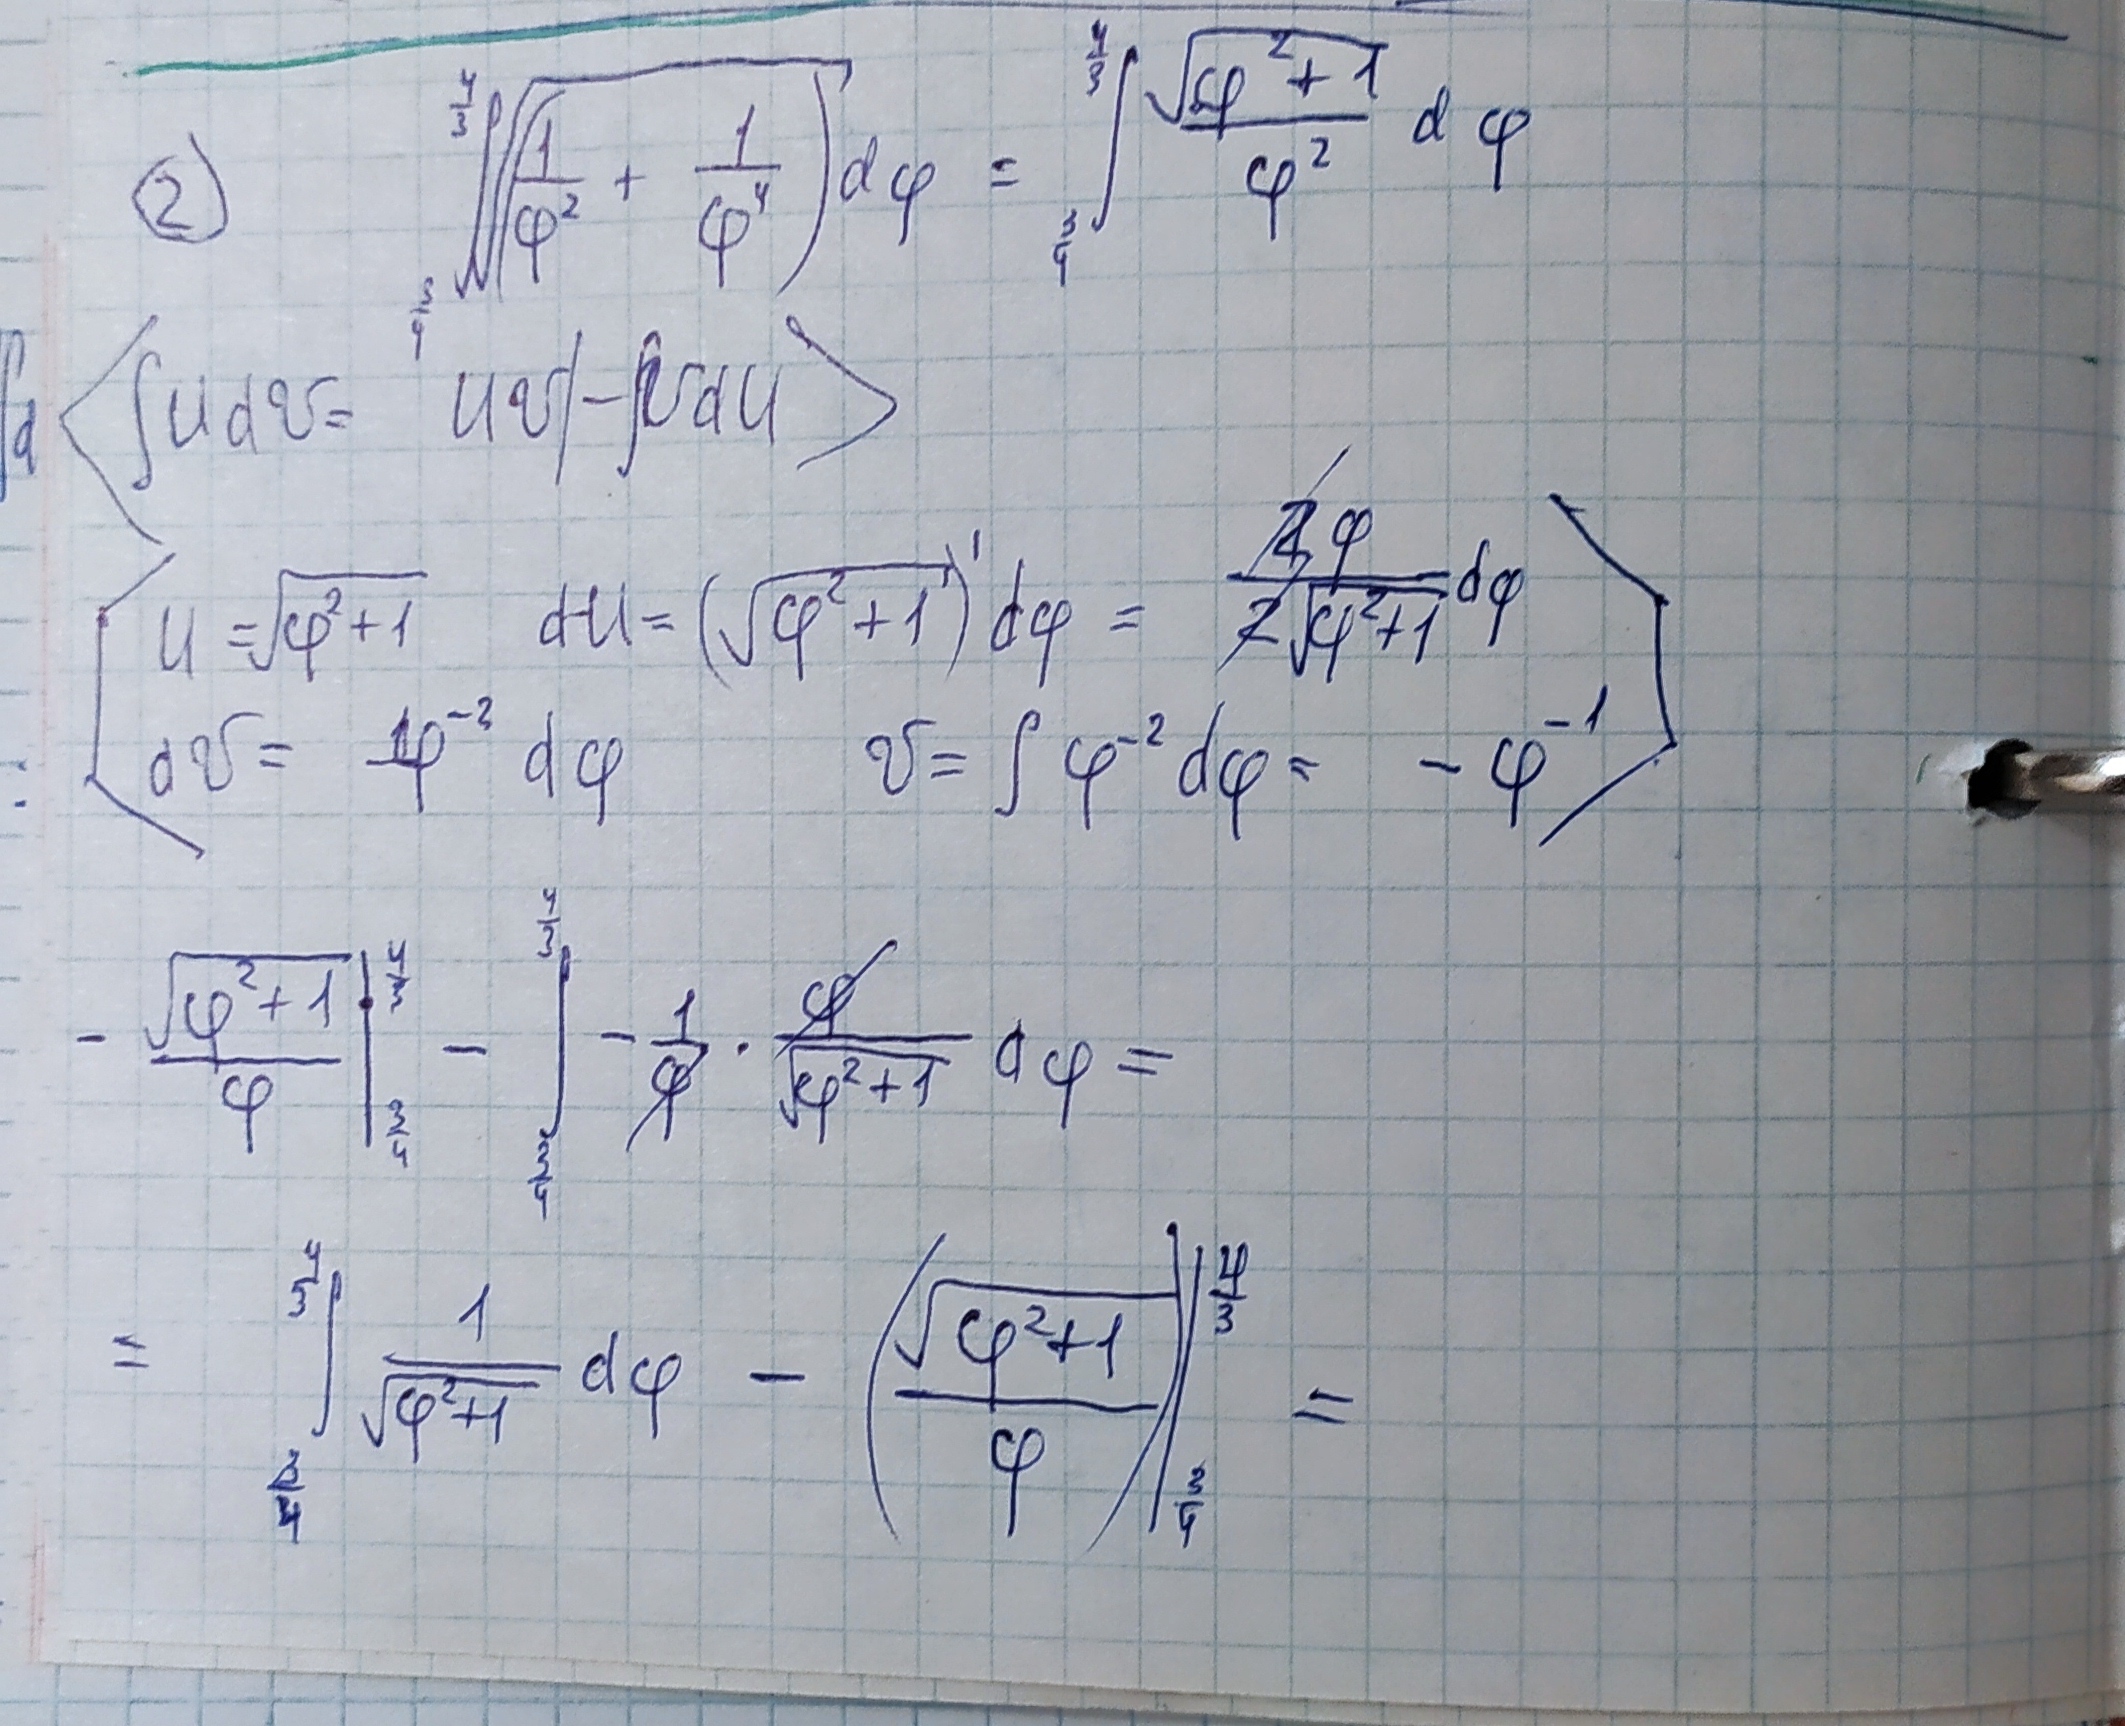 2) ∫_{3/4}^{4/3} √(1/φ² + 1/φ⁴) dφ = ∫_{3/4}^{4/3} √(φ²+1)/φ² dφ
⟨ ∫ u dv = uv| − ∫ v du ⟩
u = √(φ²+1) du = (√(φ²+1))' dφ = 2φ/(2√(φ²+1)) dφ
dv = φ⁻² dφ v = ∫ φ⁻² dφ = − φ⁻¹
− √(φ²+1)/φ |_{3/4}^{4/3} − ∫_{3/4}^{4/3} − 1/φ · φ/√(φ²+1) dφ =
= ∫_{3/4}^{4/3} 1/√(φ²+1) dφ − (√(φ²+1)/φ)|_{3/4}^{4/3} =